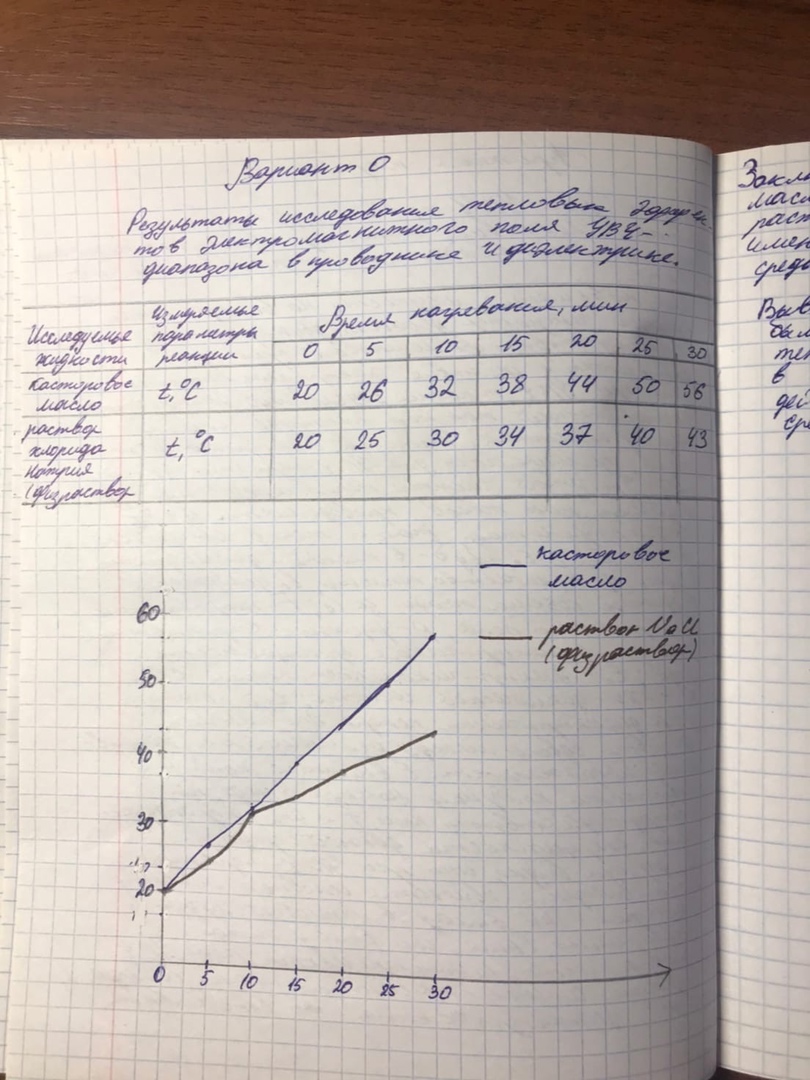 Вариант 0
Результаты исследования тепловых эффек-
тов электромагнитного поля УВЧ-
диапазона в проводнике и диэлектрике.
Исследуемые жидкости
Измеряемые параметры реакции
Время нагревания, мин
0 5 10 15 20 25 30
касторовое масло
t,°C 20 26 32 38 44 50 56
раствор хлорида натрия (физраствор
t,°C 20 25 30 34 37 40 43
касторовое
масло
раствор NaCl
(физраствор)
60
50
40
30
20
0 5 10 15 20 25 30
масл
раст
сред
Выв
был
в